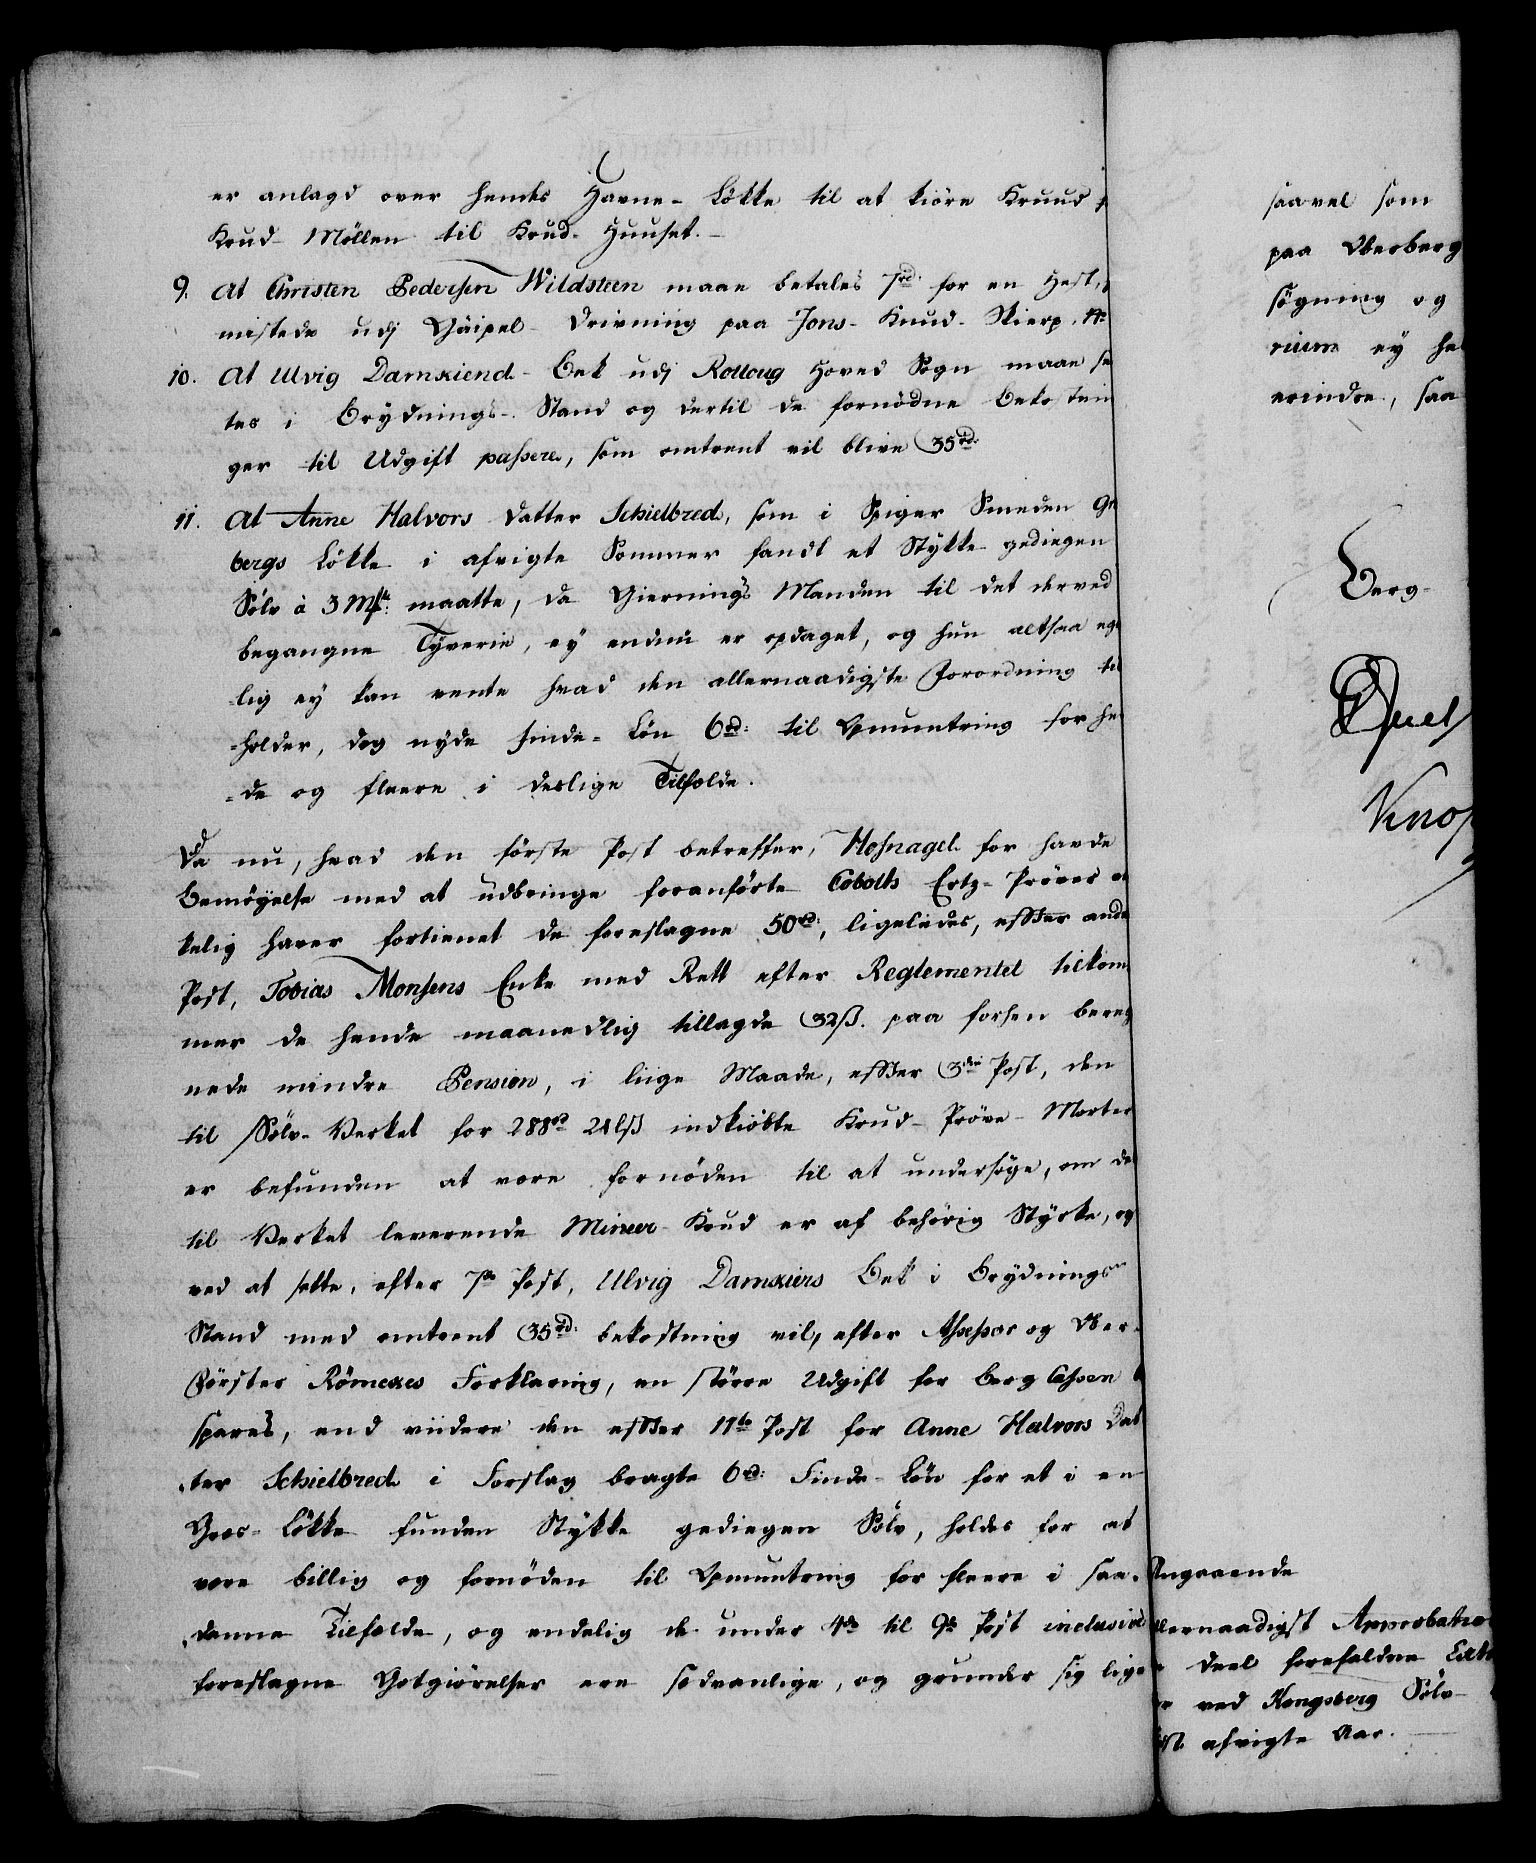 er anlagd over hendes Havne-Løkke til at kiöre Kruud f
Krud-Möllen til Krud-Huuset.
9. At Christen Pedersen Wildsteen maae betales 7rd: for en Hest,
mistede udj Gäipel-Drivning paa Jons-Knud-Skierp.
10. At Ulvig Damskiend-Bek udj Rolloug Hoved Sogn maae se
tes i Brydnings-Stand og dertil de fornödne Bekostnin
ger til Udgift passere, som omtrent vil blive 35rd:
11. At Anne Halvors Datter Schielbred, som i Spiger Smeden Gr
bergs Løkke i afvigte Sommer fandt et Stykke gediegen
Sölv à 3 Mk: maatte, da Giernings Manden til det derved
begangne Tyverie, ey endnu er opdaget, og hun altsaa ege
lig ey kan vente hvad den allernaadigste Forordning til
holder, dog nyde finde-Lön 6rd: til Opmuntring for he
de og fleere i deslige Tilfælde.
Da nu, hvad den förste Post betreffer, Hofnagel for havde
Bemöyelse med at udbringe foranförte Cobolts Ertz-Pröver
kelig haver fortienet de foreslagne 50rd:, ligeledes, effter anden
Post, Tobias Monsens Enke med Rett efter Reglementet tilkom
mer de hende maanedlig tillagde 32ß. paa forhen bereg
nede mindre Pension, i liige Maade, effter 3die Post, den
til Sölv-Verket for 288rd 24ß indkiöbte Krud-Pröve-Morter
er befunden at være fornöden til at undersöge, om de
til Verket leverende Mineer-Krud er af behörig Styrke, og
ved at sette, efter 7de Post, Ulvig Damskiers Bek i Brydnings
Stand med omtrent 35rd: bekostning vil, efter Assessor og Ober-
Förster Römekes Forklaring, en större Udgift for Berg Cassen
spares, end viidere den effter 11te Post for Anne Halvors Dat
ter Schielbred i Forslag bragte 6rd: Finde-Lön for et i en
Græs-Løkke funden Stykke gediegen Sölv, holdes for at
være billig og fornöden til Opmuntring for fleere i saa-
danne Tilfælde, og endelig de under 4de til 9de Post inclusive
foreslagne Godtgiörelser ere sædvanlige, og grunder sig lige
saavel som
paa Oberberg
sögning og
rium ey ha
erindre, saa
Berg-
Knop
Angaaende
llernaadigst Approbation
deel forefaldne Extra
ved Kongsberg Sölv-
afvigte Aar.